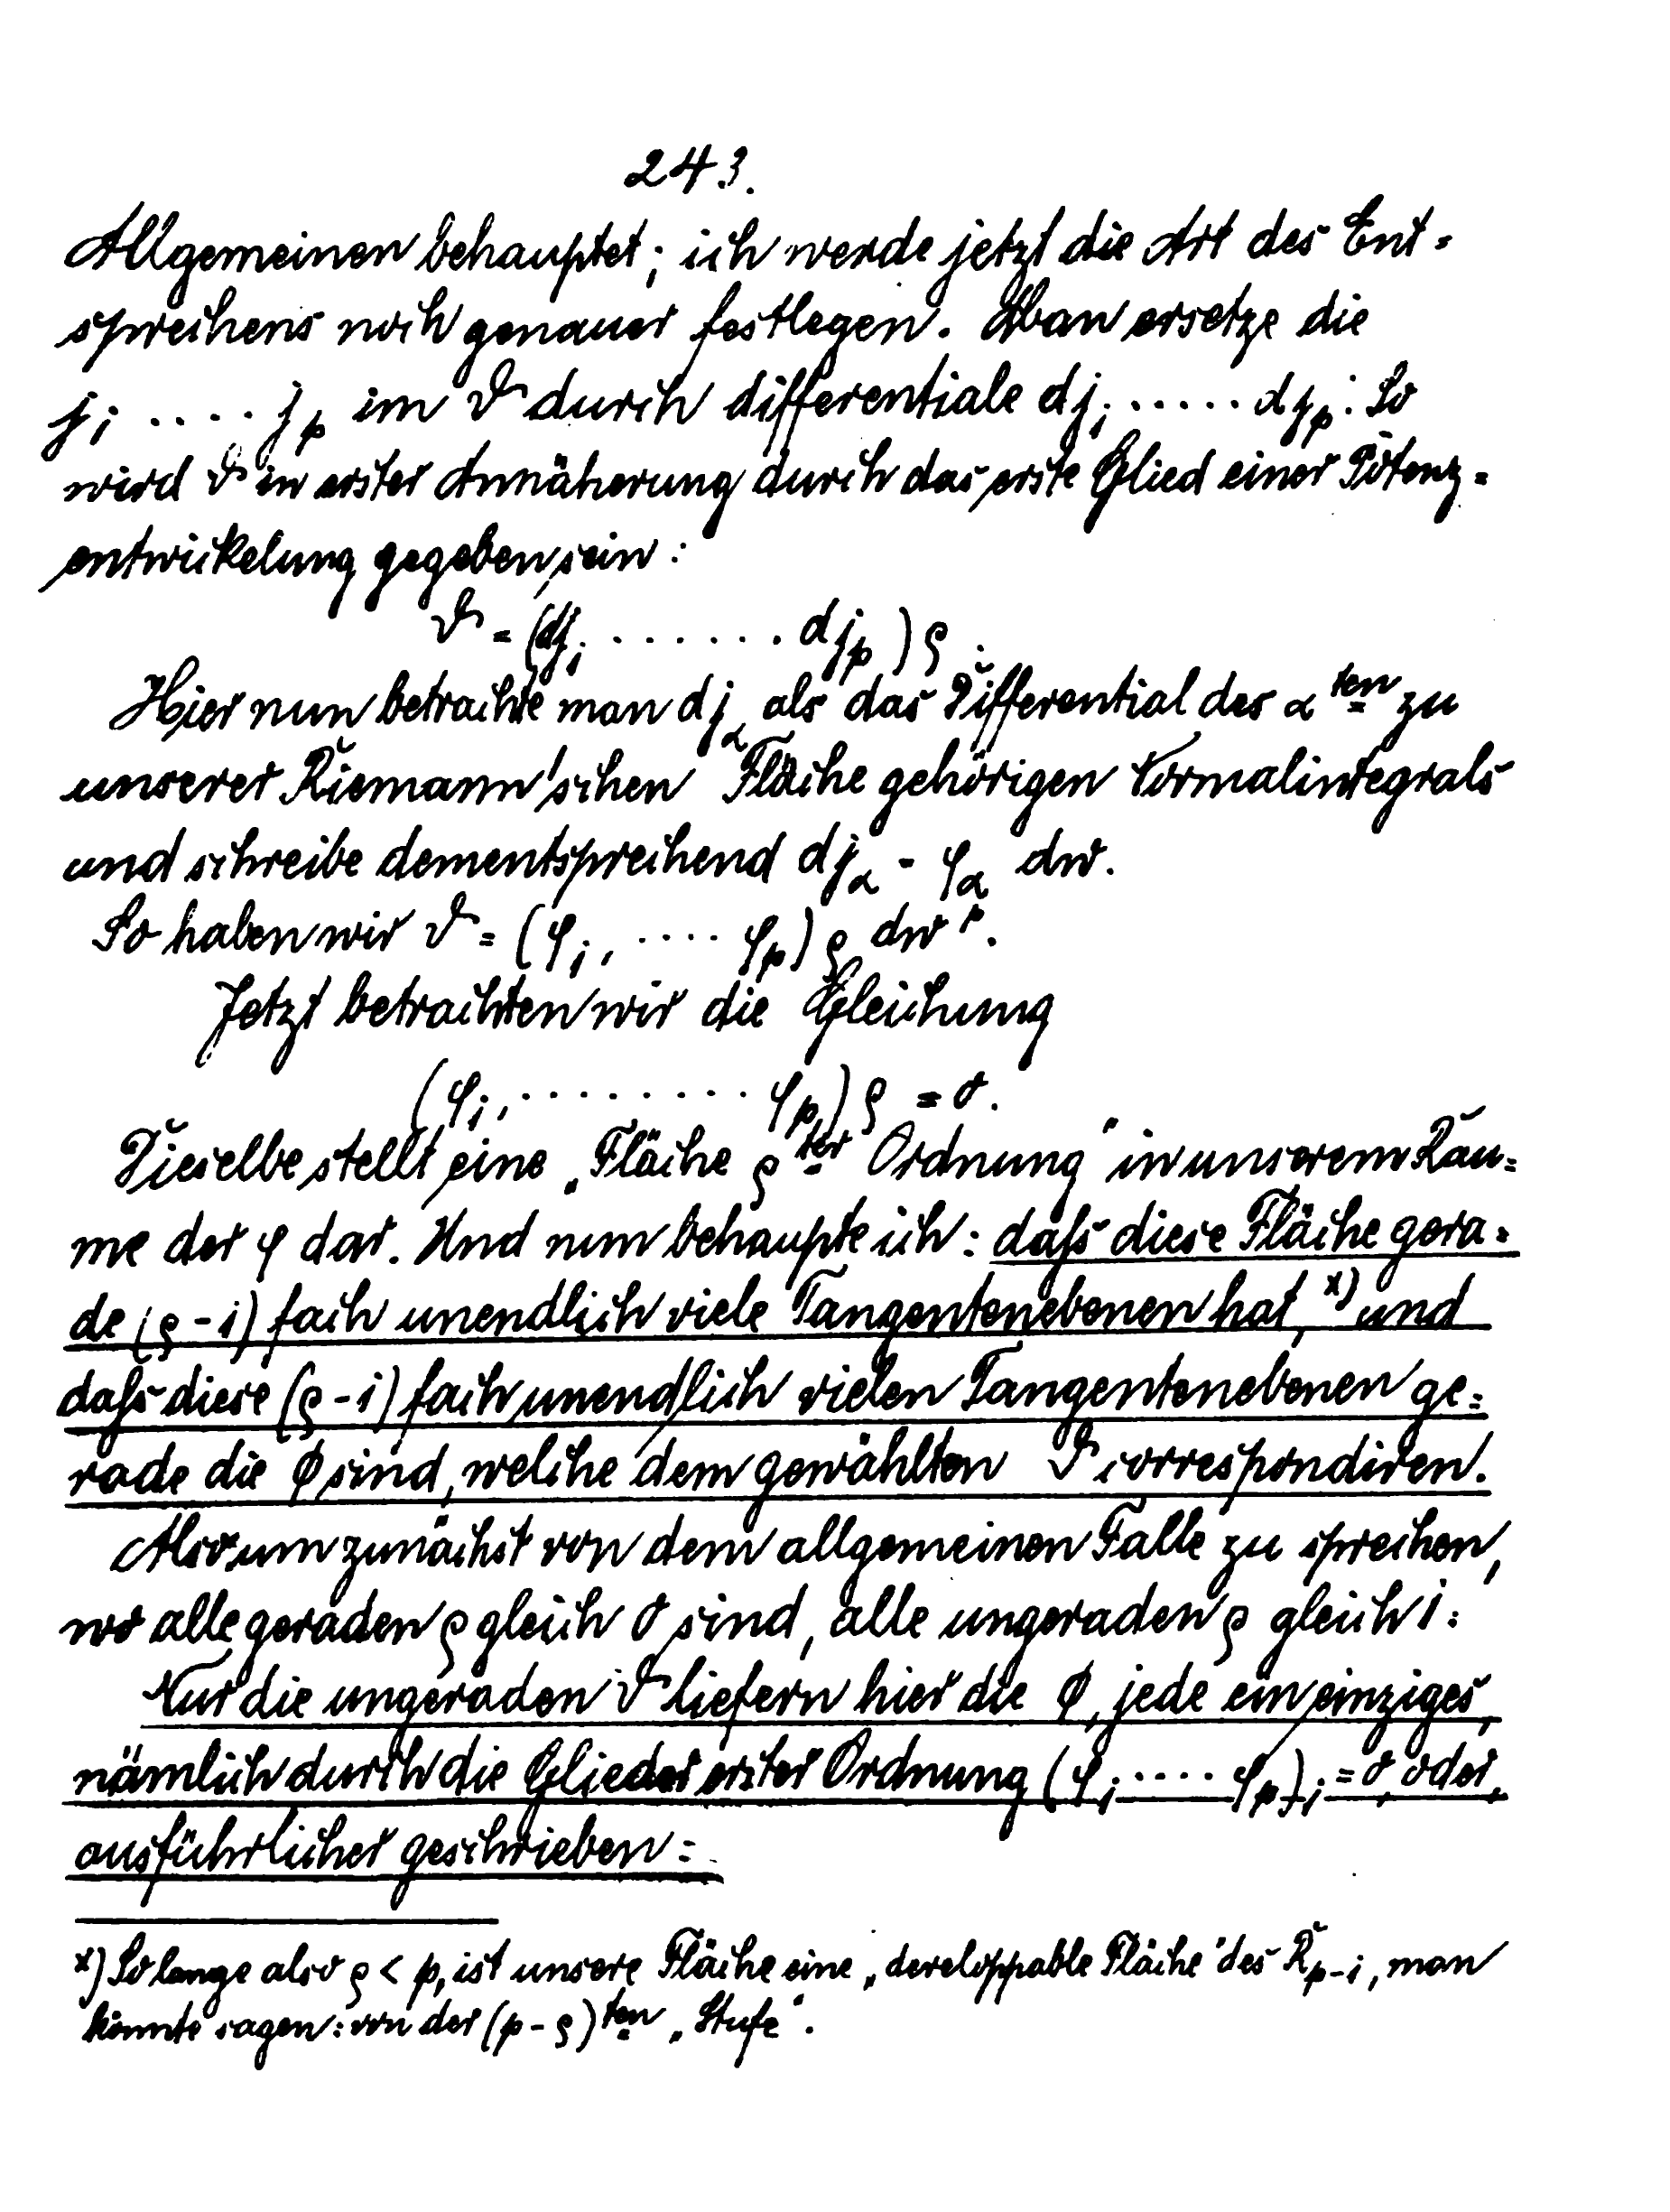 243.
Allgemeinen behauptet; ich werde jetzt die Art des Ent=
sprechens noch genauer festlegen. Man ersetze die
j₁ ..... j_p im ϑ durch differentiale dj₁ ...... dj_p. So
wird ϑ in erster Annäherung durch das erste Glied einer Potenz=
entwickelung gegeben sein:
ϑ = (dj₁ ....... dj_p)ρ.
Hier nun betrachte man dj_α als das Differential des α ten zu
unserer Riemann'schen Fläche gehörigen Normalintegrals
und schreibe dementsprechend dj_α = φ_α dw.
So haben wir ϑ = (φ₁, .... φ_p)ρ dw^ρ.
Jetzt betrachten wir die Gleichung
(φ₁, ......... φ_p)ρ = 0.
Dieselbe stellt eine „Fläche ρ ter Ordnung" in unserem Rau=
me der φ dar. Und nun behaupte ich: daſs diese Fläche gera=
de (ρ-1) fach unendlich viele Tangentenebenen hat, x) und
daſs diese (ρ-1) fach unendlich vielen Tangentenebenen ge=
rade die ϕ sind, welche dem gewählten ϑ correspondiren.
Also um zunächst von dem allgemeinen Falle zu sprechen,
wo alle geraden ρ gleich 0 sind, alle ungeraden ρ gleich 1:
Nur die ungeraden ϑ liefern hier die ϕ, jede ein einziges,
nämlich durch die Glieder erster Ordnung (φ₁ .... φ_p)₁ = 0, oder,
ausführlicher geschrieben:
x) So lange also ρ < p, ist unsere Fläche eine „developpable Fläche" des R_p-1, man
könnte sagen: von der (p-ρ) ten „Stufe".